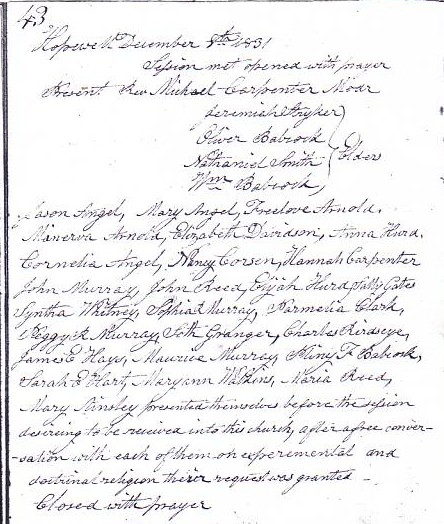 43
Hopewell December 8th 1831
Session met opened with prayer
Present Rev Michael Carpenter Modr
Jeremiah Stryker
Oliver Babcock
Nathaniel Smith Elder
Wm Babcock
Jason Angel, Mary Angel, Freelove Arnold,
Minerva Arnold, Elizabeth Davidson, Anna Hurd,
Cornelia Angel, Corsen, Hannah Carpenter
John Murray, John Reed, Elijah Hurd, Sally Gates
Syntha Whitney, Sophia Murray, Parmelia Clark,
Peggy Murray, Seth Granger, Charles Birdseye,
James E Hays, Maurice Murray, F Babcock,
Sarah E Hart, Maryann Watkins, Maria Reed,
Mary Ainsley presented themselves before the session
desireing to be received into this church, after a free conver-
-sation with each of them on experemental and
doctrinal religion their request was granted -
Closed with prayer